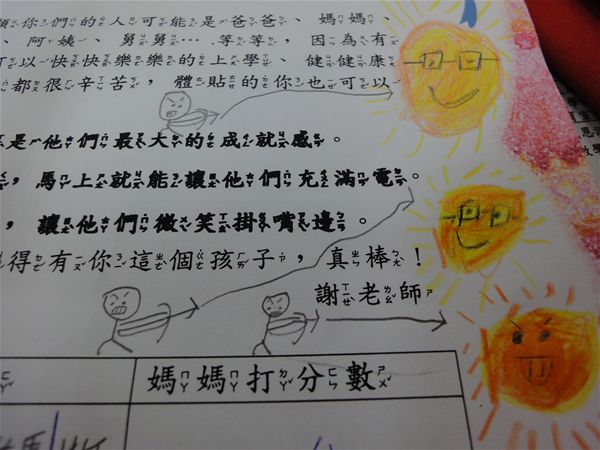 你們的人可能是爸爸、媽媽、
、阿姨、舅舅…等等，因為有
以快快樂樂的上學、健健康康
都很辛苦，體貼的你也可以
是他們最大的成就感。
，馬上就能讓他們充滿電。
，讓他們微笑掛嘴邊。
得有你這個孩子，真棒！
謝老師
媽媽打分數